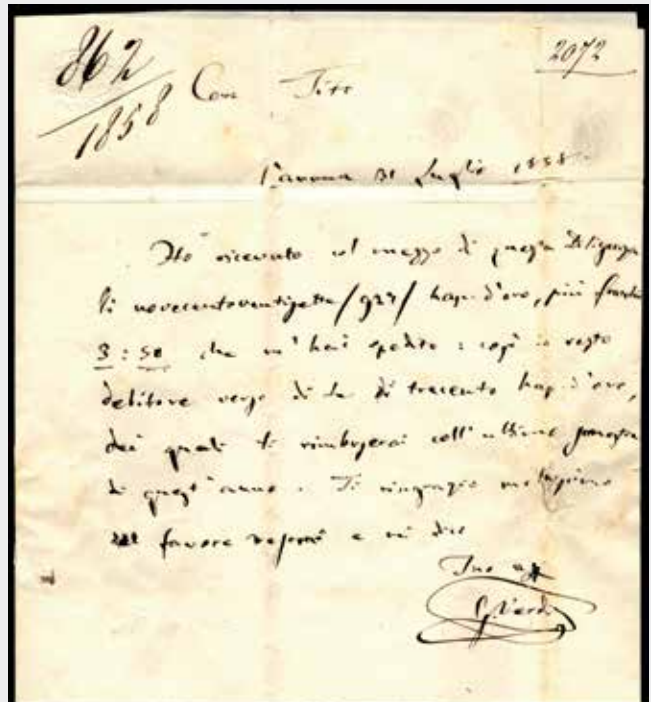 862
1858
2072
Caro Tito
31 Luglio 1858
Ho ricevuto col mezzo di questa Diligenza
li novecentoventisette /927/ nap. d'oro, più franchi
3:50 che m'hai spedito: così io resto
debitore verso di te di trecento nap. d'oro,
dei quali ti rimborserai coll'ultimo semestre
di quest'anno. Ti ringrazio moltissimo
favore e mi dico
Tuo aff
G. Verdi